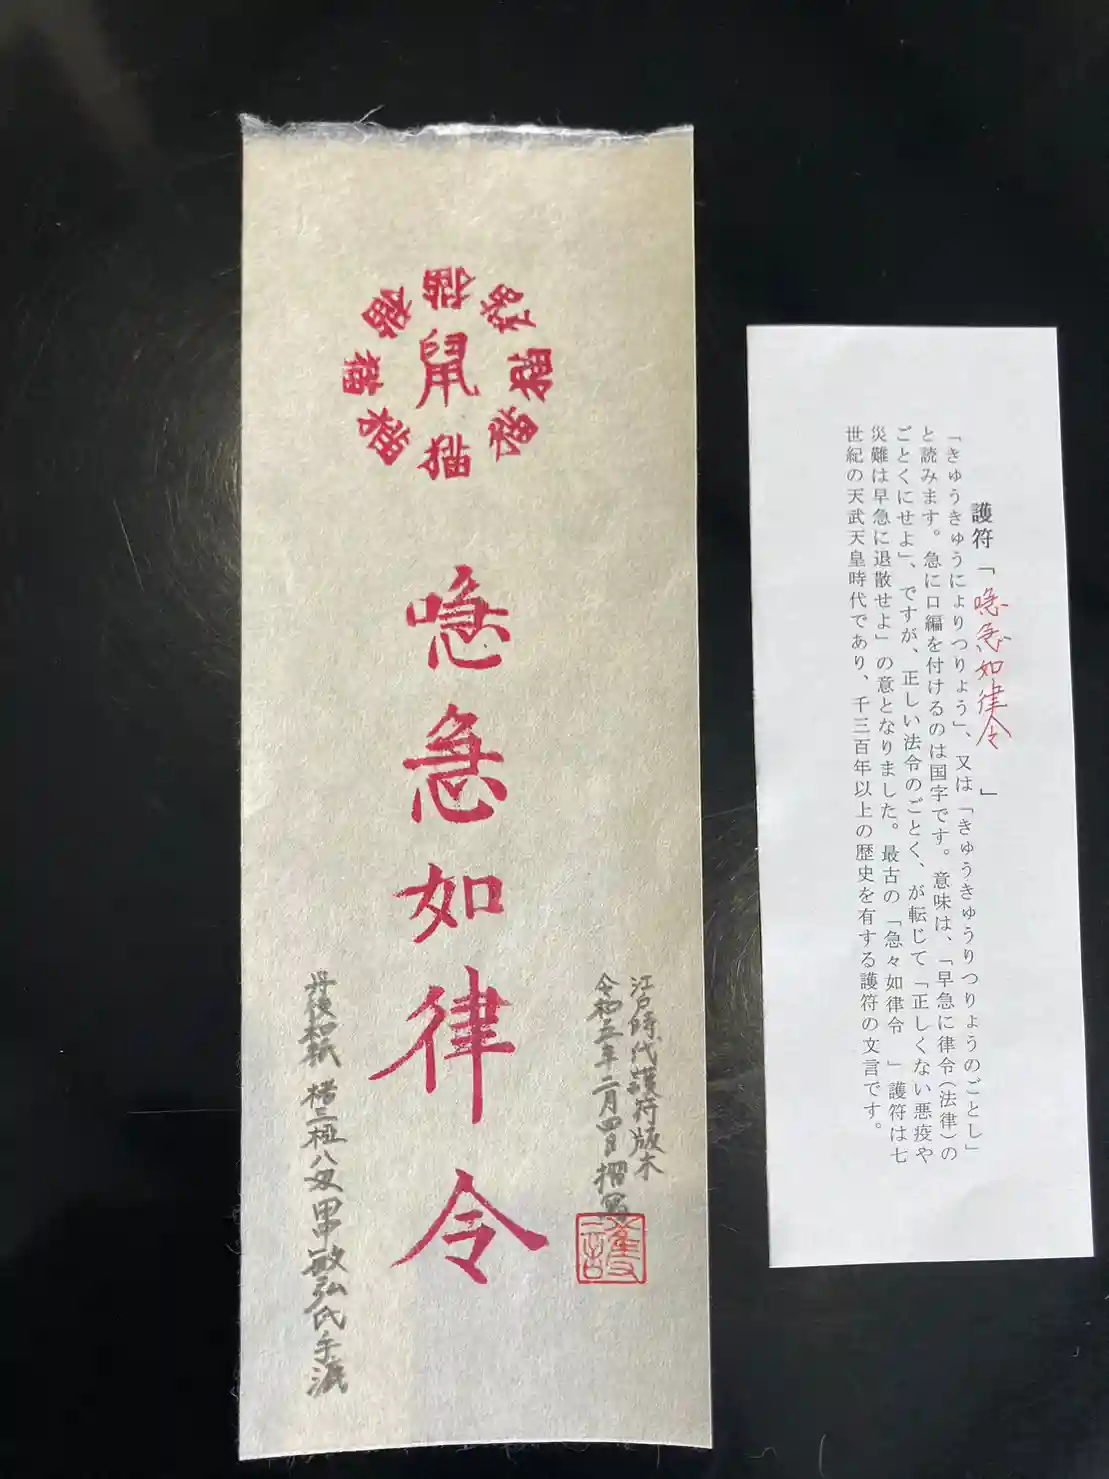 鼠
猫
猫
猫
猫
猫
猫
猫
猫
㗸急如律令
江戸時代護符版木
令和五年二月四日摺写
護
丹後和紙 楮三椏八匁 田中敏弘氏手漉
護符「㗸急如律令」
「きゅうきゅうにょりつりょう」、又は「きゅうきゅうりつりょうのごとし」
と読みます。急に口編を付けるのは国字です。意味は、「早急に律令(法律)の
ごとくにせよ」、ですが、正しい法令のごとく、が転じて「正しくない悪疫や
災難は早急に退散せよ」の意となりました。最古の「急々如律令 」護符は七
世紀の天武天皇時代であり、千三百年以上の歴史を有する護符の文言です。